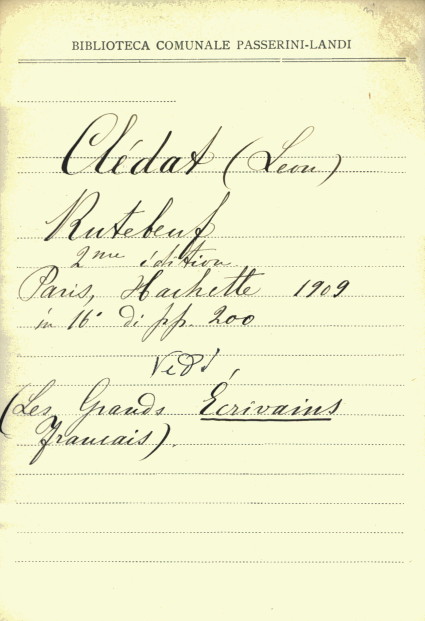 BIBLIOTECA COMUNALE PASSERINI-LANDI
Clédat (Leon)
Rutebeuf
2me édition
Paris, Hachette 1909
in 16° di pp. 200
Vedi
(Les Grands Écrivains
français).